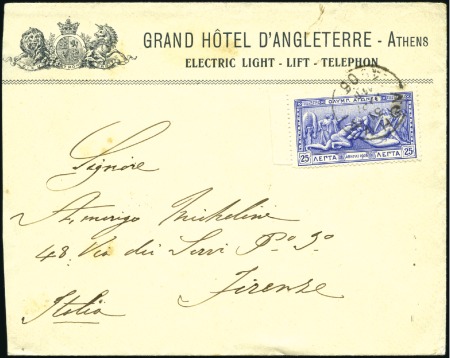 GRAND HÔTEL D'ANGLETERRE - ATHENS
ELECTRIC LIGHT - LIFT - TELEPHON
ΟΛΥΜΠ. ΑΓΩΝΕΣ
25 ΛΕΠΤΑ ΛΕΠΤΑ 25
Signore
Amerigo Micheline
48. Via dei Servi Pº 3º
Firenze
Italia